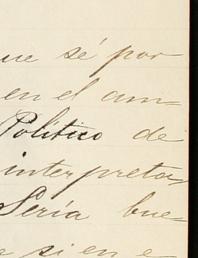 ue sé por
en el am-
Político de
interpretar
Sería bue-
e si en e